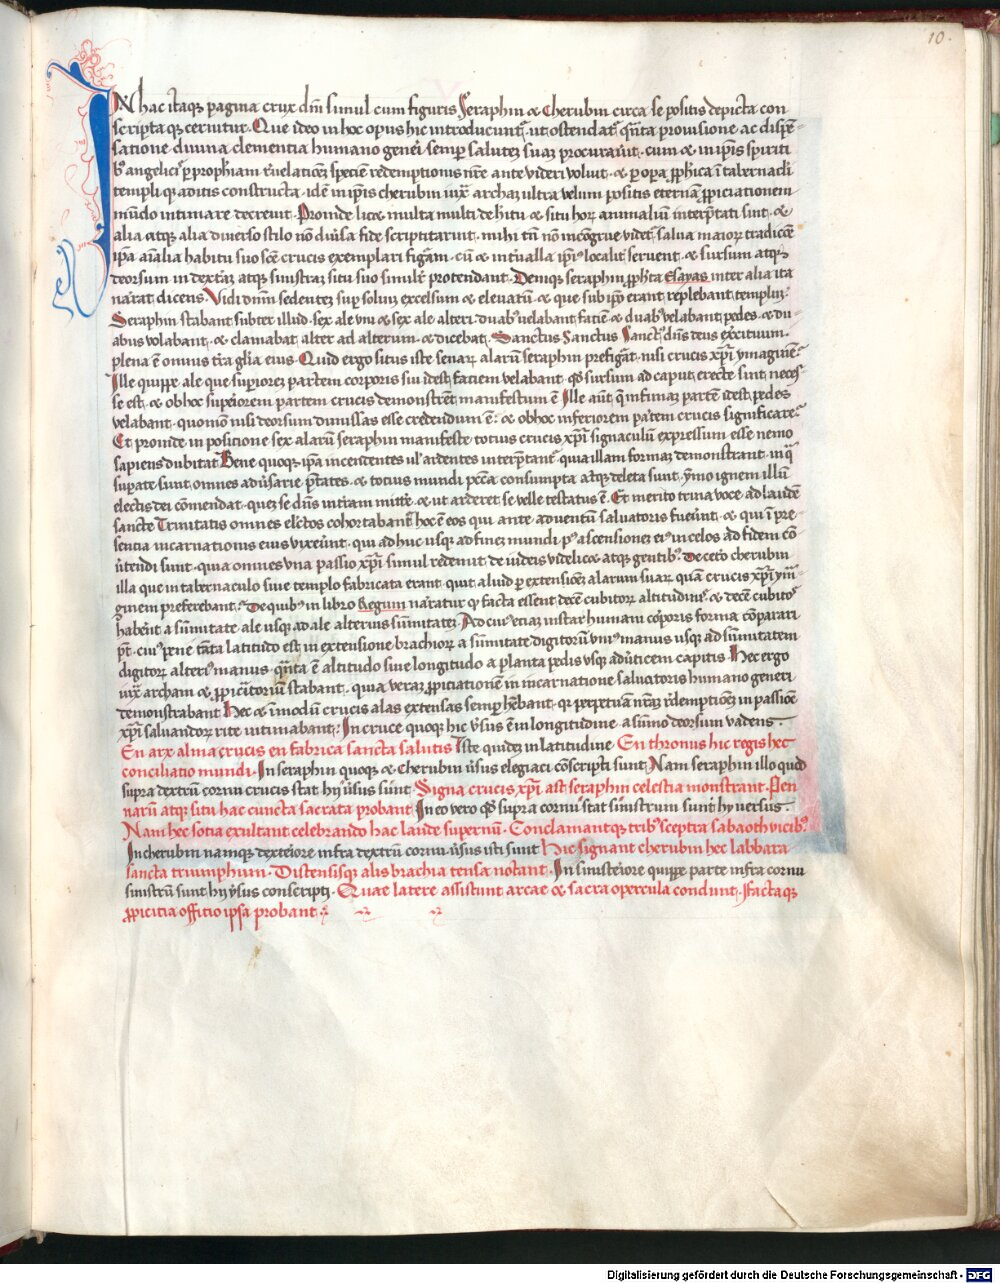 10.
IN hac itaqȝ pagina crux dnī simul cum figuris Seraphin & Cherubin circa se positis depicta con
scripta qȝ cernitur. Que ideo in hoc opus hic introducunt͛. ut ostendat͛ q̄nta prouisione ac dispē-
satione diuina clementia humano genei͛ semp͛ salutez suaz procurau͛it. cum & in ip̄is spiriti
bꝰ angelicꝭ p͛ prophīam reuelationē speciē redemptionis nr̄e ante videri voluit. & p͛ opa͛ ꝓph̄ica ī tabernacli
templi qꝫ aditis constructa. idē in ip̄is cherubin iux͛ archaz ultra velum positis eternaꝫ ꝓpiciationem
mūdo intimare decreuit. Proinde licet multa multi de hītu & situ horꝫ animaliū interp̄tati sint. &
alia atqꝫ alia diuerso stilo nō diu͛sa fide scriptitarint. mihi tn̄ nō incōgrue videt͛ salua maioꝝ tradicōe
ip̄a aīalia habitu suo scē crucis exemplari figȃm. cū & int͛ualla ip̄iꝰ localit͛ seruent. & sursum atqꝫ
deorsum in dext͛aꝫ atqꝫ sinistraꝫ situ suo simulr̄ protendant. Deniqꝫ seraphin ꝓph͛ta Esayas inter alia ita
narrat dicens. Vidi dnm̄ sedentez sup͛ soliuꝫ excelsum & eleuatū. & que sub ip͛o erant replebant templū:
Seraphin stabant subter illud. sex ale vni & sex ale alteri. duabꝰ velabant faciē & duabꝰ velabant pedes. & du-
abus volabant. & clamabat alter ad alterum. & dicebat. Sanctus Sanctus Sanctꝰ dn̄s deus exercituum.
plena ē omnis t͛ra gl̄ia eius. Quid ergo situs iste senaꝝ alarū seraphin prefigȃt. nisi crucis xp̄i ymaginē?
Ille quippe ale que supiorez partem corporis siu idest faciem velabant. qꝫ sursum ad caput erecte sint neces-
se est. & ob hoc supeiorem partem crucis demonstrēt manifestum ē Ille aūt q̄ infimaꝫ partē idest pedes
velabant. quomō nisi deorsum dimissas esse credendum ē: & ob hoc inferiorem pa͛tem crucis significare͛
Et proinde in positione sex alarū seraphin manifeste totius crucis xp̄i signaculū expressum esse nemo
sapiens dubitat. Bene quoqꝫ ip̄a incendentes ul͛ ardentes interp̄tant͛. quia illam formaꝫ demonstrant. in q͛
supate sunt omnes adu͛sarie p̄tates. & totius mundi pcc̄a consumpta atqꝫ deleta sunt. ymo ignem illū
electis dei cōmendat. queꝫ se dn̄s in t͛ram mitte͛. & ut arderet se velle testatus ē. Et merito trina voce ad laudē
sancte Trinitatis omnes el͛ctos cohortabant͛ hoc ē eos qui ante aduentū saluatoris fueūnt. & qui ī pre-
sentia incarnationis eius vixeūnt. qui adhuc usqꝫ ad fineꝫ mundi pꝰ ascensionez eiꝰ in celos ad fidem cō-
u͛tendi sunt. quia omnes vna passio xp̄i simul redemit de iudeis videlicꝫ atqꝫ gentibꝰ. De ceto͛ cherubin
illa que in tabernaculo siue templo fabricata erant. quit aliud p͛ extensiōez alarum suaꝝ quā crucis xp̄i ym̄-
ginem preferebant? De quibꝰ in libro Regum narratur qꝫ facta essent decē cubitoꝝ altitudinꝭ. & decē cubitoꝭ
haberēt a sūmitate ale usqꝫ ad ale alterius sūmitateꝫ. Ad cuiꝰ etiaꝫ instar humani corporis forma cōparari
pt̄. cuiꝰ pene tāta latitudo est in extensione brachioꝝ a sūmitate digitorū vniꝰ manus usqꝫ ad sūmitatem
digitoꝝ alteriꝰ manus. q̄nta ē altitudo siue longitudo a planta pedis vsqꝫ ad u͛ticem capitis. Hec ergo
iux͛ archam & ꝓpiciatoriū stabant. quia ueraꝫ ꝓpiciationē in incarnatione saluatoris humano generi
demonstrabant. Hec & in modū crucis alas extensas semp͛ hēbant. qꝫ perpetuā nr͛aꝫ redemptionez in passiōe
xp̄i saluandoꝝ rite intimabant: In cruce quoqꝫ hic v͛sus ē in longitudine a sūmo deorsum vadens.
En arx alma crucis en fabrica sancta salutis Iste quideꝫ in latitudine En thronus hic regis hec
conciliatio mundi. In seraphin quoqꝫ & cherubin u͛sus elegiaci cōscripti sunt. Nam seraphin illo quod
supra dextrū cornu crucis stat hij u͛sus sunt. Signa crucis xp̄i ast seraphin celestia monstrant. Pen
narū atqꝫ situ hac cuncta sacrata probant In eo vero qꝫ supra cornu stat sinistrum sunt hij versus.
Nam hec sotia exultant celebrando hac laude supernū. Conclamantqꝫ tribꝰ sceptra sabaoth vicibꝰ.
In cherubin namqꝫ dexteiore infra dextrū cornu u͛sus isti sunt Hic signant cherubin hec labbara
sancta triumphum. Distensisqꝫ alis brachia tensa notant. In sinisteiore quippe parte infra cornu
sinistrū sunt hij u͛sus conscripti. Quae latere assistunt arcae & sacra opercula condunt. factaqꝫ
ꝓpicitia officio ipsa probant:
Digitalisierung gefördert durch die Deutsche Forschungsgemeinschaft - DFG